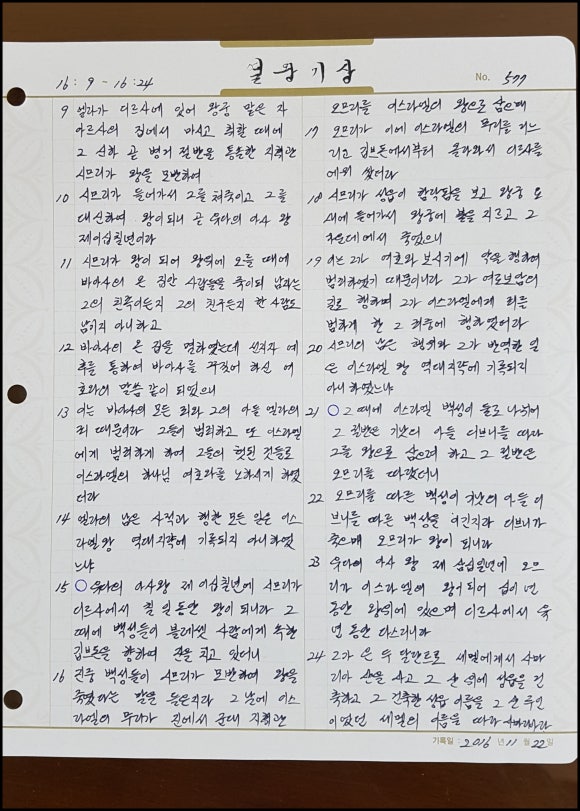 열왕기상
16 : 9 ~ 16 : 24
No. 577
9 엘라가 디르사에 있어 왕궁 맡은 자
아르사의 집에서 마시고 취할 때에
그 신하 곧 병거 절반을 통솔한 지휘관
시므리가 왕을 모반하여
10 시므리가 들어가서 그를 쳐죽이고 그를
대신하여 왕이 되니 곧 유다의 아사 왕
제이십칠년이라
11 시므리가 왕이 되어 왕위에 오를 때에
바아사의 온 집안 사람들을 죽이되 남자는
그의 친족이든지 그의 친구든지 한 사람도
남기지 아니하고
12 바아사의 온 집을 멸하였는데 선지자 예
후를 통하여 바아사를 꾸짖어 하신 여
호와의 말씀 같이 되었으니
13 이는 바아사의 모든 죄와 그의 아들 엘라의
죄 때문이라 그들이 범죄하고 또 이스라엘
에게 범죄하게 하여 그들의 헛된 것들로
이스라엘의 하나님 여호와를 노하시게 하였
더라
14 엘라의 남은 사적과 행한 모든 일은 이스
라엘 왕 역대지략에 기록되지 아니하였
느냐
15 ○ 유다의 아사 왕 제이십칠년에 시므리가
디르사에서 칠 일 동안 왕이 되니라 그
때에 백성들이 블레셋 사람에게 속한
깁브돈을 향하여 진을 치고 있더니
16 진중 백성들이 시므리가 모반하여 왕을
죽였다는 말을 들은지라 그 날에 이스
라엘의 무리가 진에서 군대 지휘관
오므리를 이스라엘의 왕으로 삼으매
17 오므리가 이에 이스라엘의 무리를 거느
리고 깁브돈에서부터 올라와서 디르사를
에워 쌌더라
18 시므리가 성읍이 함락됨을 보고 왕궁 요
새에 들어가서 왕궁에 불을 지르고 그
가운데에서 죽었으니
19 이는 그가 여호와 보시기에 악을 행하여
범죄하였기 때문이니라 그가 여로보암의
길로 행하며 그가 이스라엘에게 죄를
범하게 한 그 죄중에 행하였더라
20 시므리의 남은 행위와 그가 반역한 일
은 이스라엘 왕 역대지략에 기록되지
아니하였느냐
21 ○ 그 때에 이스라엘 백성이 둘로 나뉘어
그 절반은 기낫의 아들 디브니를 따라
그를 왕으로 삼으려 하고 그 절반은
오므리를 따랐더니
22 오므리를 따른 백성이 기낫의 아들 디
브니를 따른 백성을 이긴지라 디브니가
죽으매 오므리가 왕이 되니라
23 유다의 아사 왕 제삼십일년에 오므
리가 이스라엘의 왕이 되어 십이 년
동안 왕위에 있으며 디르사에서 육
년 동안 다스리니라
24 그가 은 두 달란트로 세멜에게서 사마
리아 산을 사고 그 산 위에 성읍을 건
축하고 그 건축한 성읍 이름을 그 산 주인
이었던 세멜의 이름을 따라 사마리아라
기록일 : 2016 년 11 월 22 일